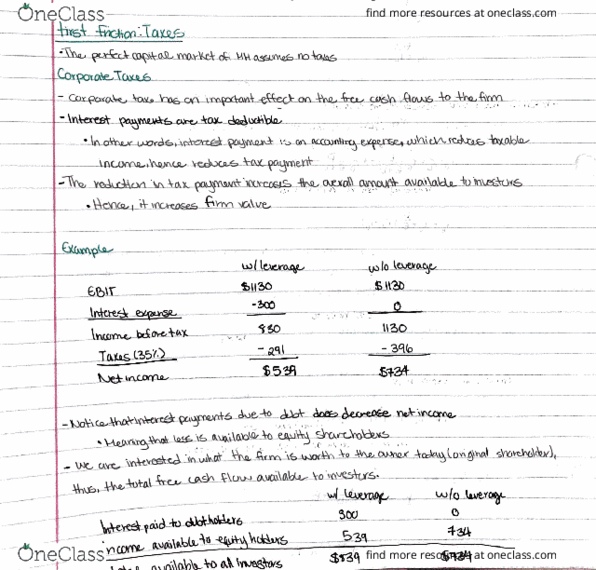 OneClass find more resources at oneclass.com
First friction: Taxes
- The perfect capital market of MM assumes no taxes
Corporate Taxes
- Corporate tax has an important effect on the free cash flows to the firm
- Interest payments are tax deductible
• In other words, interest payment is an accounting expense, which reduces taxable
income, hence reduces tax payment
- The reduction in tax payment increases the overall amount available to investors
• Hence, it increases firm value
Example
w/ leverage w/o leverage
EBIT $1130 $1130
Interest expense -300 0
Income before tax 830 1130
Taxes (35%) - 291 - 396
Net income $539 $734
- Notice that interest payments due to debt does decrease net income
• Meaning that less is available to equity shareholders
- We are interested in what the firm is worth to the owner today (original shareholder),
thus, the total free cash flow available to investors.
w/ leverage w/o leverage
Interest paid to debtholders 300 0
Income available to equity holders 539 734
OneClass find more resources at oneclass.com
available to all investors $839 $734